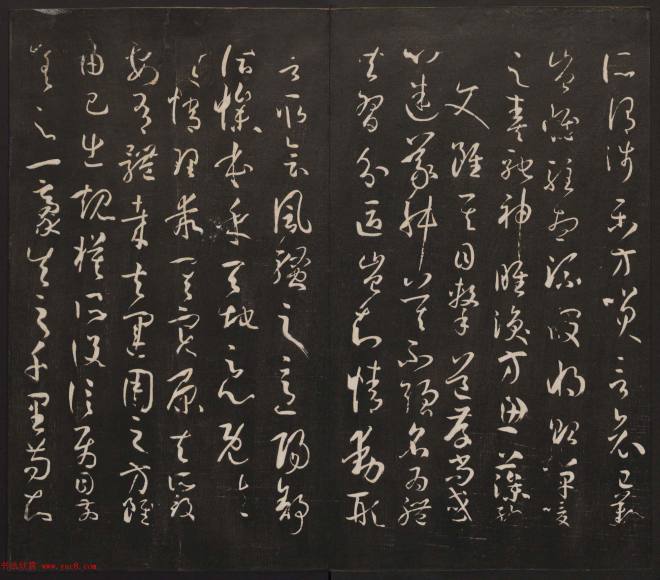 所謂涉樂方笑言哀已歎
豈惟駐想流波將貽嘽喛
之奏馳神睢渙方思藻繪
文雖其目擊道存尚或
心迷議舛莫不強名為體
共習分區豈知情動形
言取會風騷之意陽舒
陰慘本乎天地之心既失
其情理乖其實原夫所致
安有體哉夫運用之方雖
由己出規模所設信屬目前
差之一豪失之千里苟知
书法欣赏 www.yac8.com